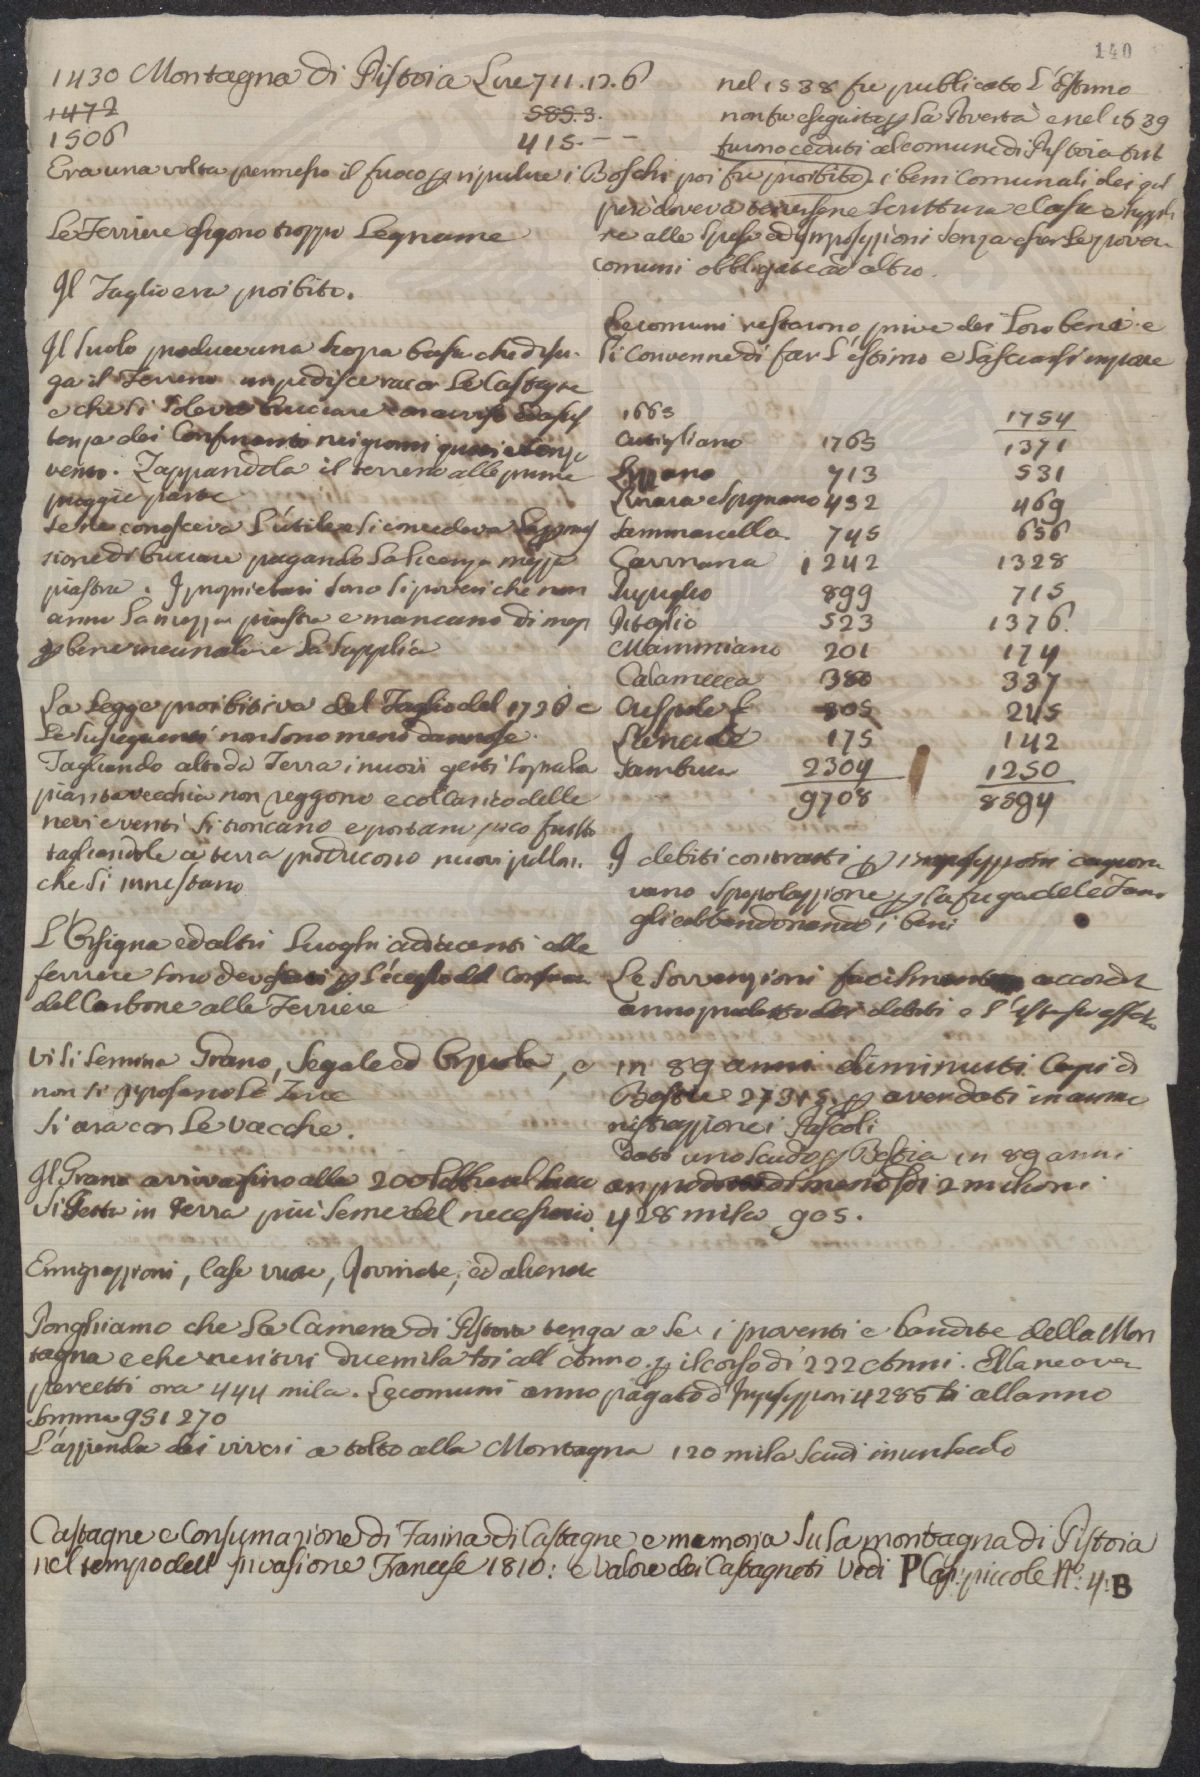 140
1430 Montagna di Pistoia Lire 711.17.6
1472 585.3.
1506 415.- -
Era una volta permesso il fuoco p ripulire i Boschi poi fu proibito
Le Ferriere esigono troppo Legname
Il Taglio era proibito.
Il suolo produce una scopa bassa che
ga il Terreno impedisce racor Le Castagne
e che si soleva bruciare
tenza dei nei giorni
vento. Zappandola il terreno alle prime
piogge parte
se ne conosceva L'utile e si concedeva
sione di bruciare pagando La licenza mezza
piastra. I proprietari sono si poveri che non
anno La mezza piastra e mancano di
La Legge proibitiva del Taglio del 1736 e
Le susseguenti non sono meno dannose.
Tagliando alto da Terra i nuovi getti sopra la
pianta vecchia non reggono e col Carico delle
nevi e venti si troncano e portano poco frutto
tagliandole a terra producono nuovi polloni
che si innestano
L'Orsigna ed altri Luoghi adiacenti alle
ferriere sono p L'eccesso del
del Carbone alle Ferriere
Vi si semina Grano, Segale ed, e
non si riposano Le Terre
Si ara con Le vacche.
Il Grano arriva fino alle 200
Si Getta in Terra piu seme del necessario.
Emigrazioni, Case vuote, Rovinate, ed alienate
nel 1538 fu publicato L'Estimo
non fu eseguito p La Poverta e nel 1539
furono ceduti al comune di Pistoia tut
i beni Comunali dei
pero doveva tenersene Scrittura e Casse e
re alle Spese ed Imposizioni senza esser Le povere
comuni obbligate ad altro.
Le comuni restarono prive dei Loro beni e
si convenne di far L'estimo e Lasciarsi imporre
1665 1754
Cutigliano 1765 1371
Lizzano 713 531
Pignano 432 469
Sammarcello 745 656
Cavinana 1242 1328
Popiglio 899 715
Piteglio 523 1376
Mammiano 201 174
Calamecca 380 337
Crespole 305 245
Lanciole 175 142
Sambuca 2304 1250
9708 8594
I debiti contratti p imposizioni cagiona
vano Spopolazzione p la fuga dele Fami
gli abbandonando i beni
Le Sovvenzioni facilmente accorda
anno
in 89 anni diminuiti Capi di
Bestie 27315. p aver dati in ammi
nistrazzione i Pascoli
Dato uno Scudo p Bestia in 89 anni
an prodotto di meno Sdi 2 milioni
428 mila 905.
Ponghiamo che La Camera di Pistoia tenga a Se i proventi e bandite della Mon
tagna e che ne ritiri due mila Sdi all Anno. p il corso di 222 Anni. Ella ne aveva
percetti ora 444 mila. Le comuni anno pagato d'Imposizzioni 4285 Sdi all anno
Somma 951270
L'azzienda dei viveri a tolto alla Montagna 120 mila Scudi in un secolo
Castagne e Consumazione di Farina di Castagne e memoria Su la montagna di Pistoia
nel tempo dell invasione Francese 1810: e Valore dei Castagneti Vedi P piccole No: 4: B